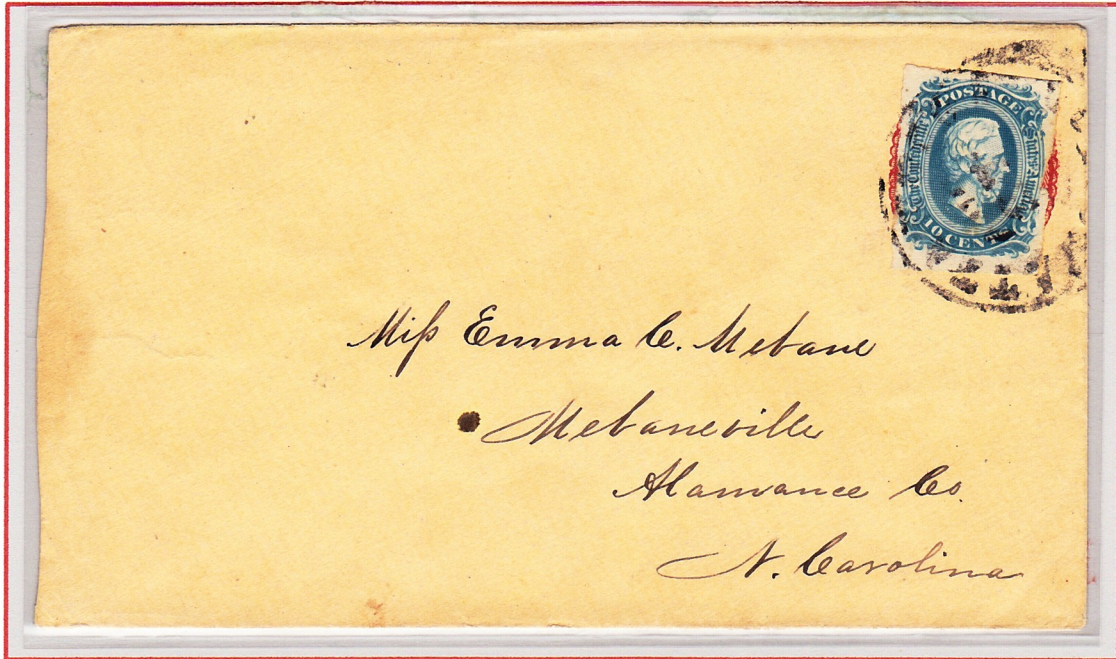 POSTAGE
The Confederate States of America
10 CENTS
Miſs Emma C. Mebane
Mebaneville
Alamance Co.
N. Carolina